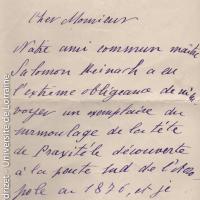 Cher Monsieur
Notre ami commun maître
Salomon Reinach a eu
l'extrême obligeance de m'en-
voyer un exemplaire du
surmoulage de la tête
de Praxitèle découverte
à la pente sud de l'Acro
pole en 1876, et je
drizet - Université de Lorraine